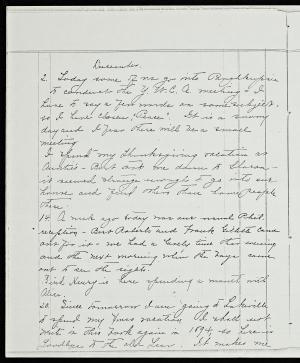 December
2. Today some of us go into Poughkeepsie
to conduct the Y.W.C.A. meeting. I
have to say a few words on some subject,
so I have chosen "Peace". It is a snowy
day and I fear there will be a small
meeting.
I spent my Thanksgiving vacation at
Auntie's - But
it seemed strange enough to go into our
house and find other than home people
there.
14. A week ago today was our usual Phil.
reception - Bert Roberts and Frank came
out for it - we had a lovely time that evening
and the next morning when the boys came
out to see the sights.
is here spending a month with
Alice.
20. Since tomorrow I am going to
to spend my Xmas vacation & shall not
write in this book again in 1894 so here is
Goodbye to the old Year. It makes me